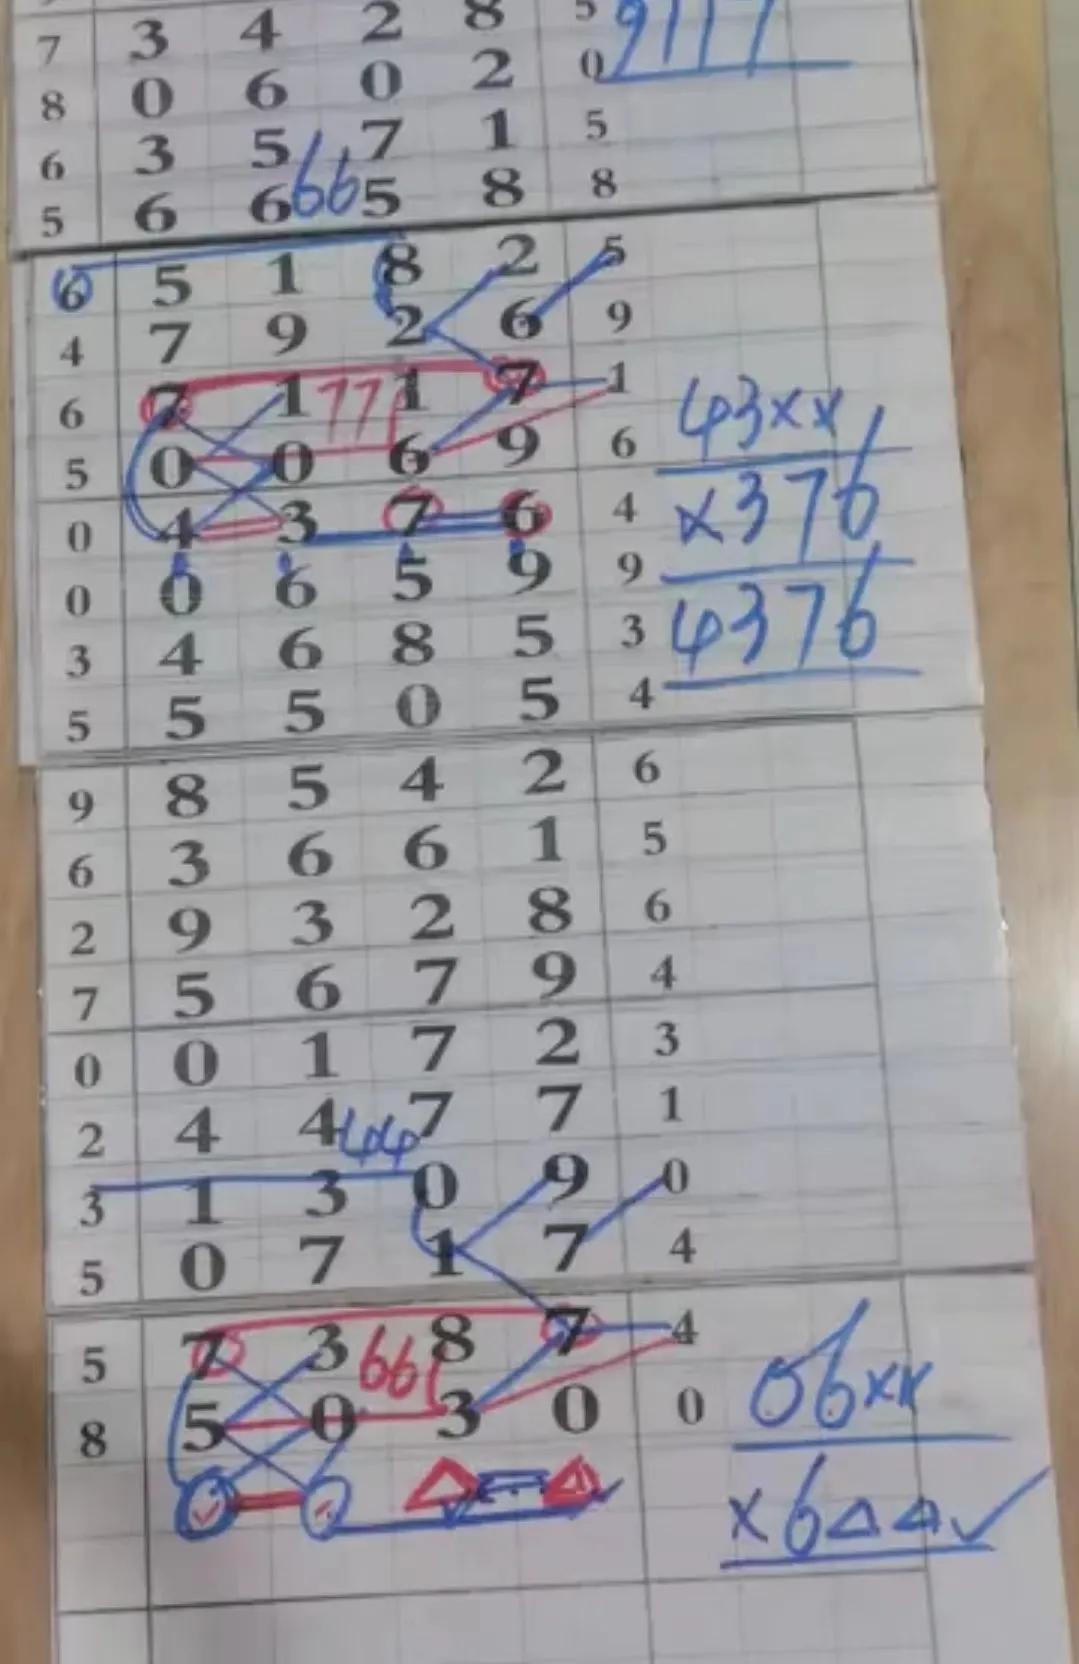 7 3 4 2 8 5 9117
8 0 6 0 2 0
6 3 5 7 1 5
66
5 6 6 5 8 8
6 5 1 8 2 5
4 7 9 2 6 9
6 7 1 1 7 1
77
43xx
5 0 0 6 9 6
x376
0 4 3 7 6 4
0 0 6 5 9 9
4376
3 4 6 8 5 3
5 5 5 0 5 4
9 8 5 4 2 6
6 3 6 6 1 5
2 9 3 2 8 6
7 5 6 7 9 4
0 0 1 7 2 3
2 4 4 7 7 1
44
3 1 3 0 9 0
5 0 7 1 7 4
5 7 3 8 7 4
66
06xx
8 5 0 3 0 0
x6△△✓